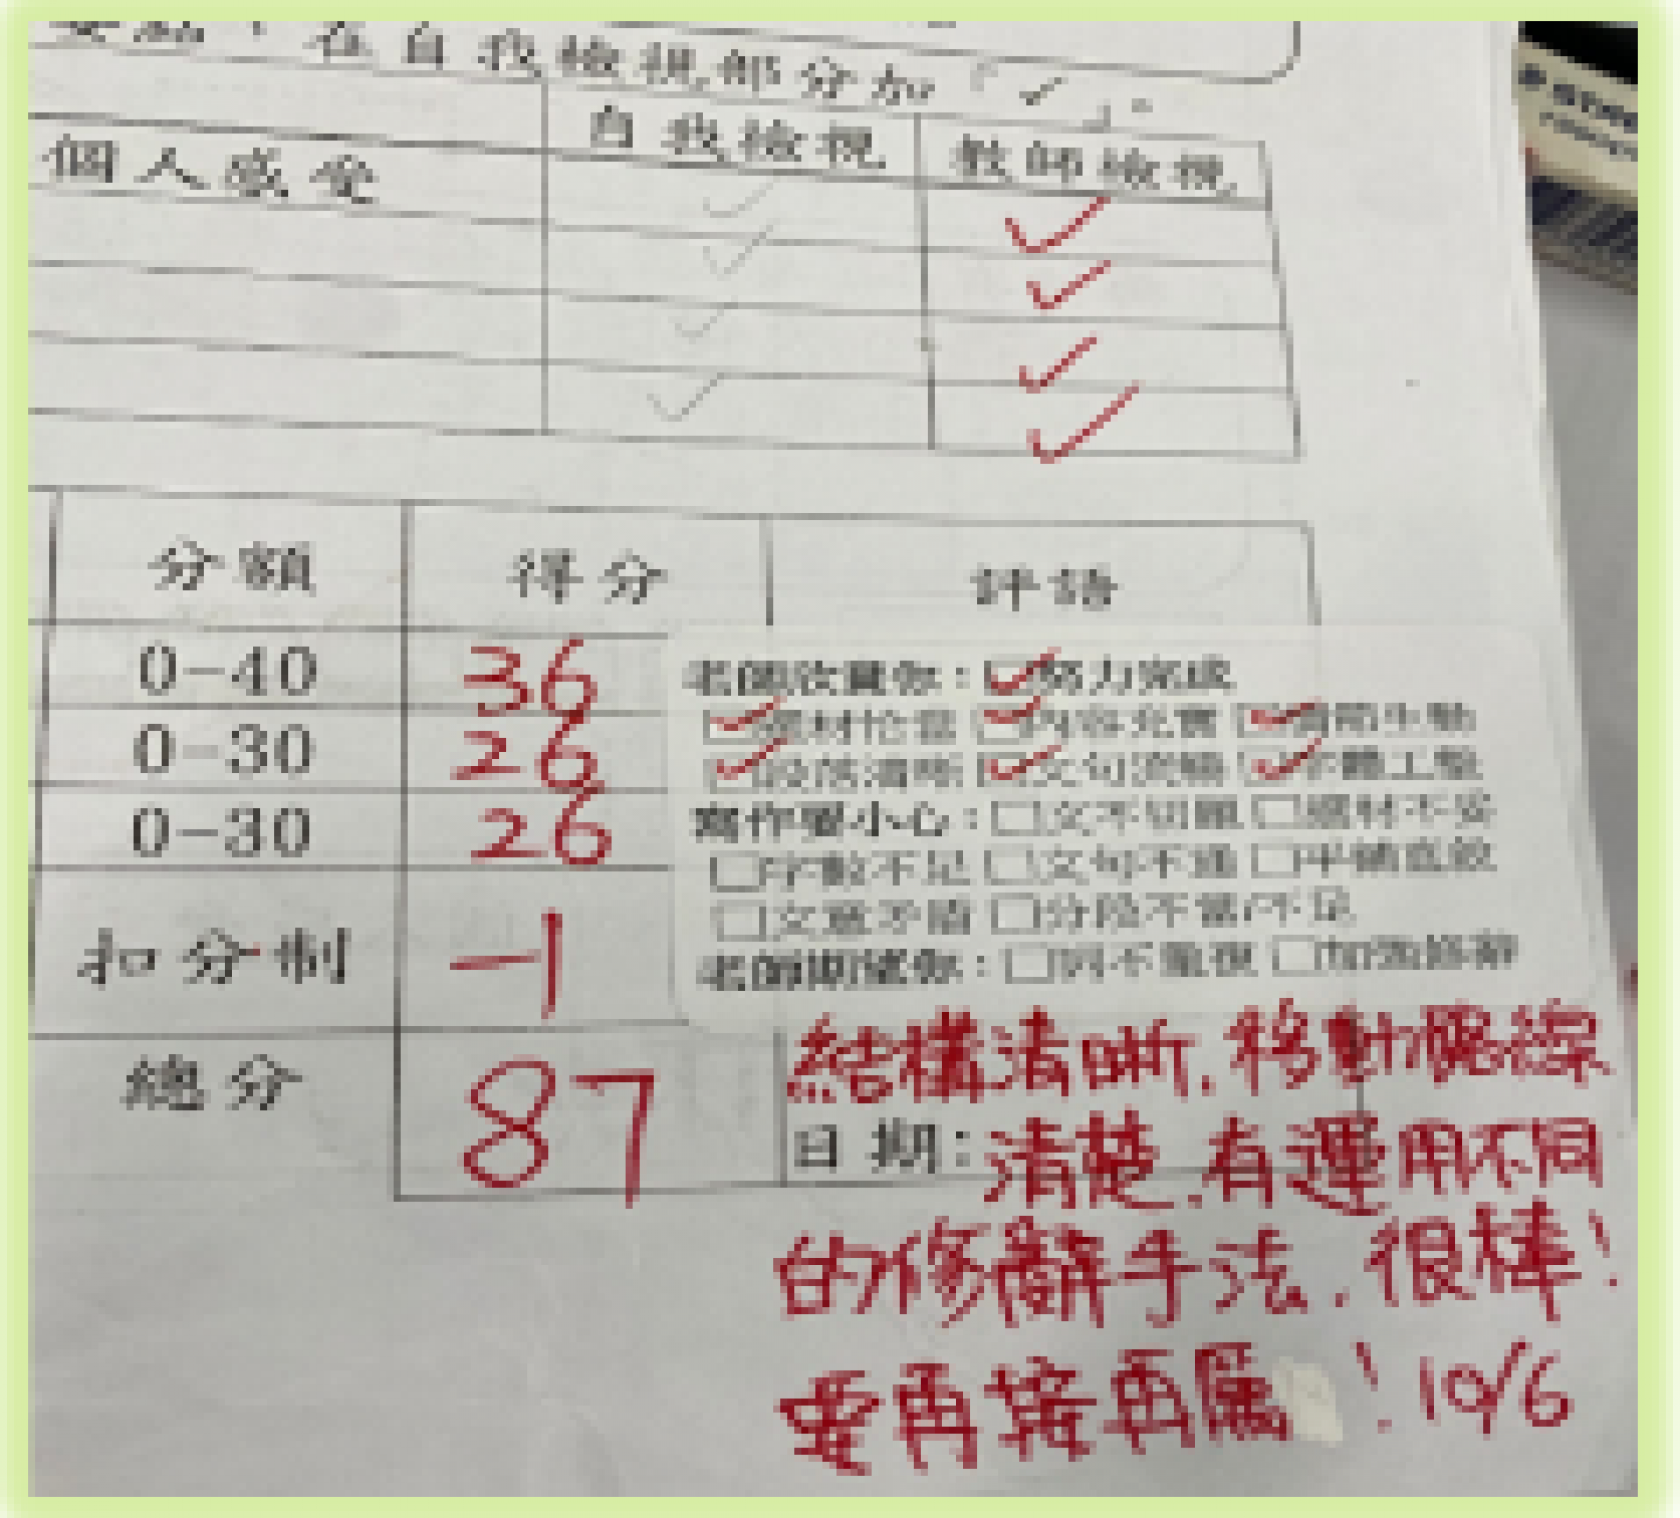 在自我檢視部分加「✓」。
個人感受 自我檢視 教師檢視
✓ ✓
✓ ✓
✓ ✓
✓ ✓
分額 得分 評語
0-40 36
0-30 26
0-30 26
扣分制 -1
總分 87
老師欣賞你：☑努力完成
☑選材恰當 ☑內容充實 ☑
☑段落清晰 ☑文句流暢 ☑字體工整
寫作要小心：□文不切題 □選材不妥
□字數不足 □文句不通 □平鋪直敘
□文意矛盾 □分段不當/不足
老師期望你：□詞不重複 □加強修辭
結構清晰,移動路線
日期：清楚,有運用不同
的修辭手法,很棒!
要再接再厲!10/6